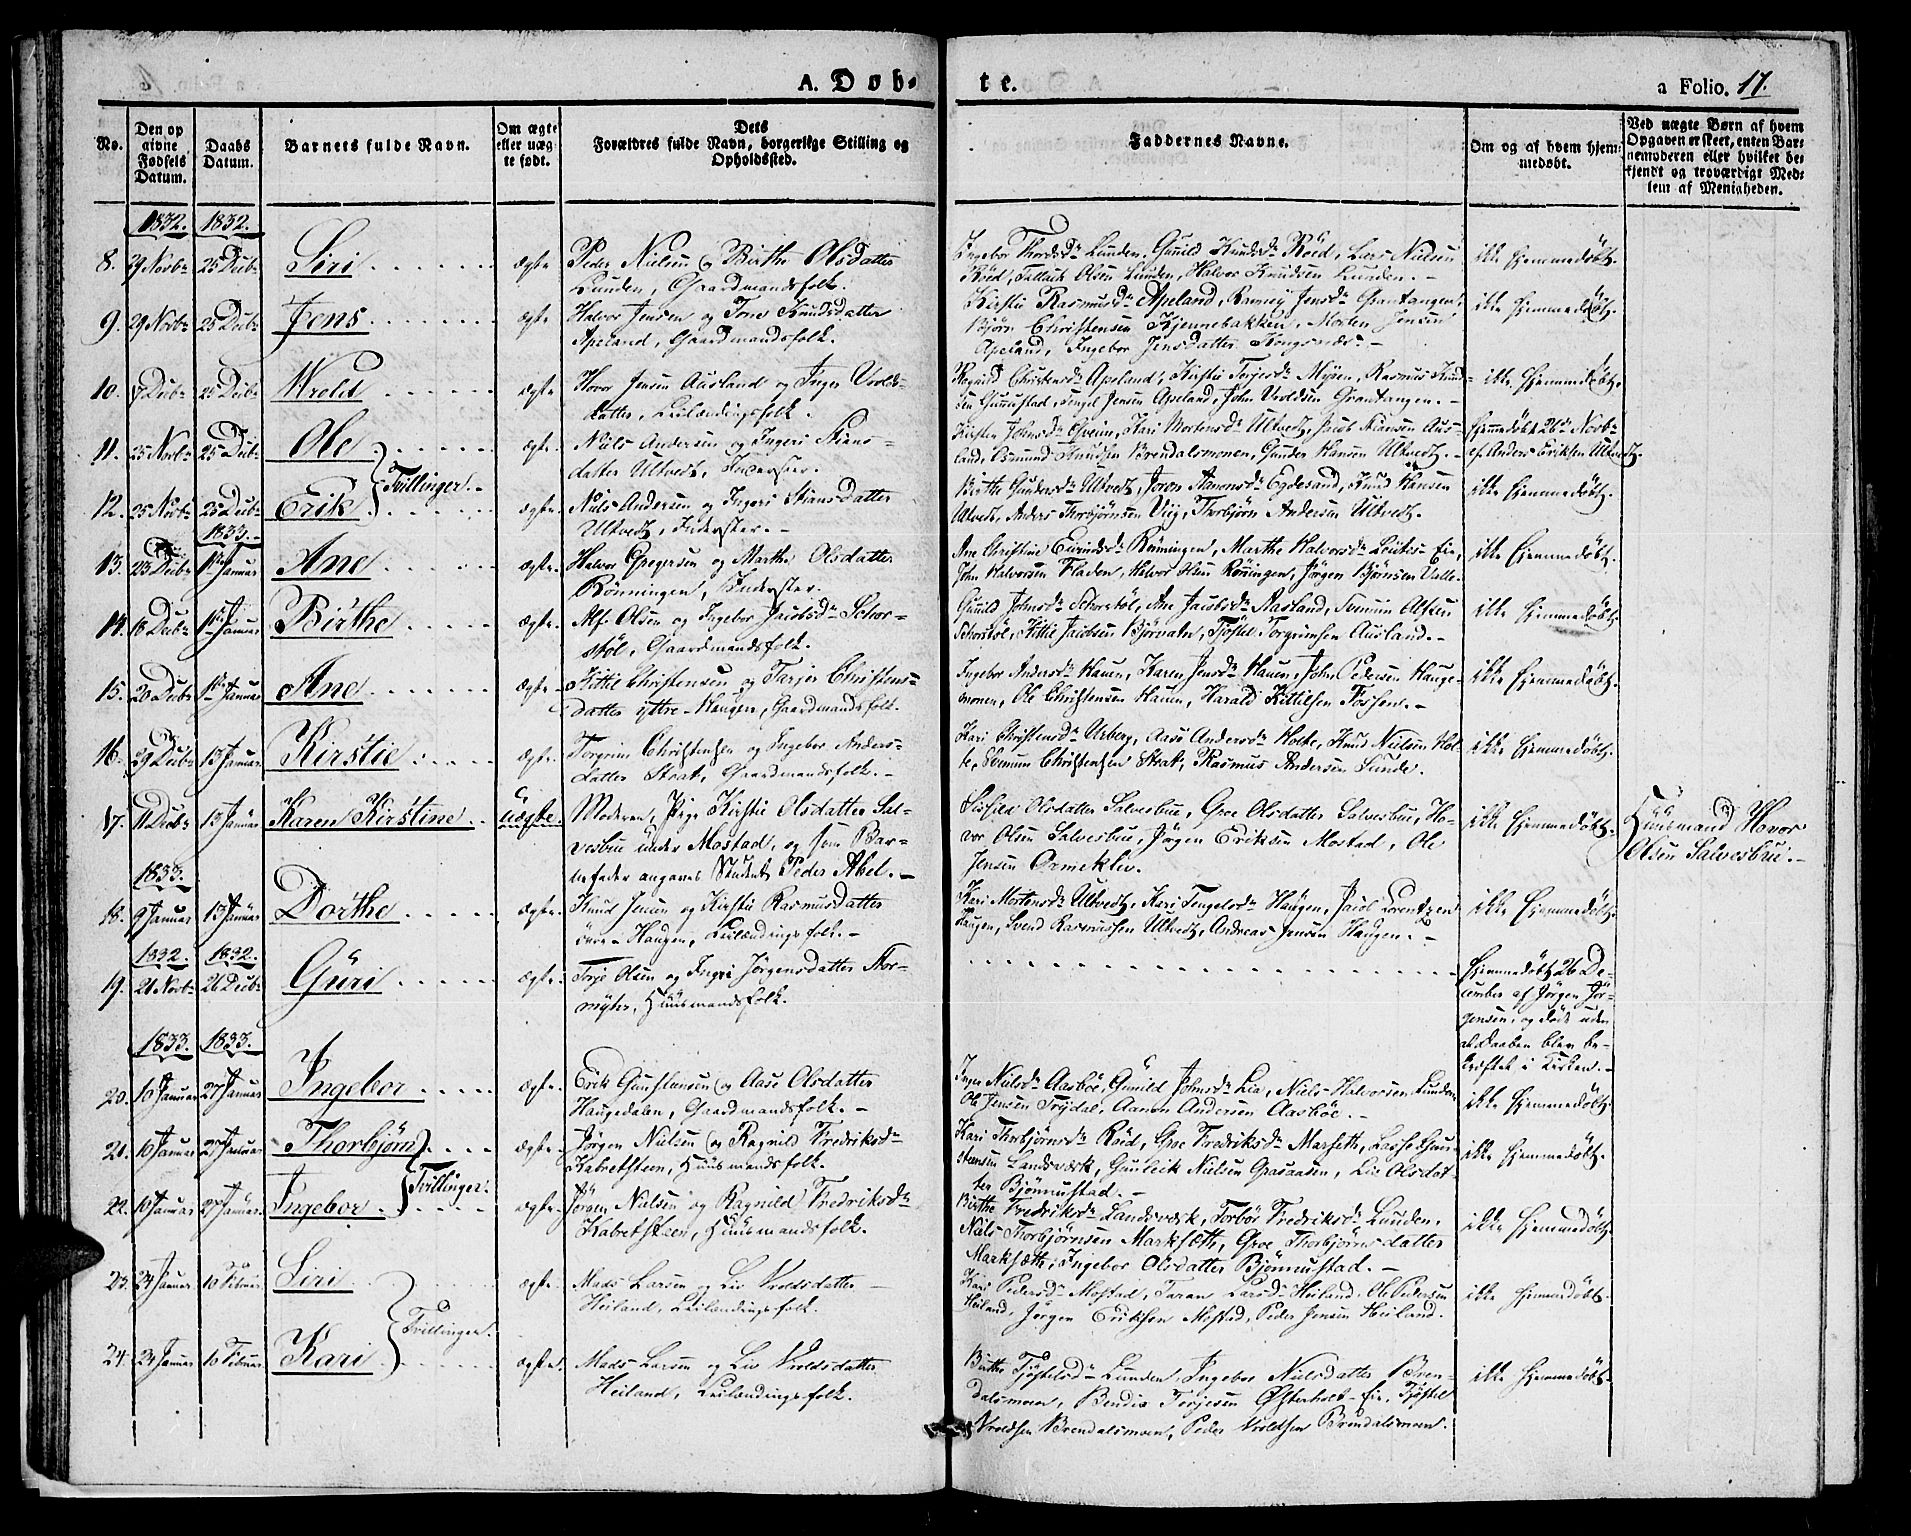 A. Døb-
te.
a Folio. 17.
No.
Den opgivne Fødsels Datum.
Daabs Datum.
Barnets fulde Navn.
Om ægte eller uægte født.
Dets Forældres fulde Navn, borgerlige Stilling og Opholdssted.
Faddernes Navne.
Om og af hvem hjemmedøbt.
Ved uægte Børn af hvem Opgaven er skeet, enten Barnemoderen eller hvilket bekjendt og troværdigt Medlem af Menigheden.
1832. 1832.
8. 29 Novbr 25 Decbr Siri ægte. Peder Nielsen og Birthe Olsdatter
Lunden, Gaardmandsfolk.
Ingebor Thordsdr Lunden, Gunild Knudsdr Röed, Lars Nielsen
Röed, Tallak Olsen Lunden, Halvor Knudsen Lunden.
ikke hjemmedöbt.
9. 29 Novbr 25 Decbr Jens ægte Halvor Jensen og Tone Knudsdatter
Apeland, Gaardmandsfolk.
Kirstie Rasmusdr Apeland, Jensdr Grantangen,
Björn Christensen Kjennebakken, Morten Jensen
Apeland, Ingebor Jensdatter
ikke hjemmedöbt.
10. 7 Decbr 25 Decbr Wrold ægte Hovor Jensen Ausland og Inger Vrolds-
datter, Leilændingsfolk.
Ragnild Christensdr Apeland, Kirstie Terjesdr Myren, Rasmus Knud-
sen Gunnestad, Tengel Jensen Apeland, John Vroldsen Grantangen.
ikke hjemmedöbt.
11. 25 Novbr 25 Decbr Ole ægte Niels Andersen og Ingeri Stians-
datter Ultvedt, Inderster.
Kirsten Johnsdr Hveim, Kari Mortensdr Ultvedt, Jacob Stiansen Aus-
land, Osmund Knudsen Brendalsmonen, Gunder Hansen Ultvedt.
hjemmedöbt 26de Novbr
af Anders Eriksen Ultvedt.
Tvillinger.
12. 25 Novbr 25 Decbr Erik ægte Niels Andersen og Ingeri Stiansdatter
Ultvedt, Inderster.
Birthe Gundersdr Ultvedt, Joron Aanonsdr Egdesand, Knud Hansen
Ultvedt, Anders Thorbjörnsen Viig, Thorbjörn Andersen Ultvedt.
ikke hjemmedöbt.
1833.
13. 23 Decbr 1ste Januar Ane ægte. Halvor Gregersen og Marthe Olsdatter
Rönningen, Inderster.
Ane Christine Eivindsdr Rönningen, Marthe Halvorsdr Eie,
John Halvorsen Fladen, Halvor Olsen Rönningen, Jörgen Björnsen Valle.
ikke hjemmedöbt.
14. 16 Decbr 1ste Januar Birthe ægte. Alf Olsen og Ingebor Jacobsdr Schor-
stöl, Gaardmandsfolk.
Gunild Johnsdr Schorstöl, Ane Jacobsdr Aasland, Svenum Alfsen
Schorstöl, Kittil Jacobsen Björvatn, Tjöstel Torgrimsen Ausland.
ikke hjemmedöbt.
15. 20 Decbr 1ste Januar Ane ægte. Kittil Christensen og Tarjer Christens-
datter yttre Haugen, Gaardmandsfolk.
Ingebor Andersdr Hauen, Karen Jensdr Hauen, John Pedersen Hauge-
monen, Ole Christensen Hauen, Harald Kittilsen Fossen.
ikke hjemmedöbt.
16. 29 Decbr 13 Januar Kirstie ægte. Torgrim Christensen og Ingebor Anders-
datter Stoat, Gaardmandsfolk.
Kari Christensdr Urberg, Aase Andersdr Holte, Knud Nielsen Hol-
te, Svenum Christensen Stoat, Rasmus Andersen Sunde.
ikke hjemmedöbt.
17. 11 Decbr 13 Januar Karen Kirstine uægte. Moderen, Pige Kirstie Olsdatter Sal-
vesbue under Mostad, og som Bar-
nefader angaves Student Peder Abel.
Sissild Olsdatter Salvesbue, Groe Olsdatter Salvesbue, Ho-
vor Olsen Salvesbue, Jörgen Eriksen Mostad, Ole
Jensen Ormeklev.
ikke hjemmedöbt.
Huusmand Hovor
Olsen Salvesbue.
1833.
18. 9 Januar 13 Januar Dorthe ægte Knud Jensen og Kirstie Rasmusdatter
övre Haugen, Leilændingsfolk.
Kari Mortensdr Ultvedt, Kari Tengelsdr Haugen, Jacob Lorentzen
Haugen, Svend Rasmussen Ultvedt, Andreas Jensen Haugen.
ikke hjemmedöbt.
1832. 1832.
19. 21 Novbr 26 Decbr Guri ægte. Terje Olsen og Ingeri Jörgensdatter Stor-
myher, Huusmandsfolk.
hjemmedöbt 26 De-
cember af Jörgen Jör-
gensen, og döde uden
at Daaben blev be-
kræftet i Kirken.
1833. 1833.
20. 10 Januar 27 Januar Ingebor ægte. Erik Gunstensen og Aase Olsdatter
Haugedalen, Gaardmandsfolk.
Inger Nielsdr Aasböe, Gunild Johnsdr Lia, Niels Halvorsen Lunden,
Ole Jensen Frydal, Aanon Andersen Aasböe.
ikke hjemmedöbt.
21. 10 Januar 27 Januar Thorbjörn ægte. Jörgen Nielsen og Ragnild Fredriksdr
Kabretsteen, Huusmandsfolk.
Kari Thorbjörnsdr Röed, Groe Fredriksdr Marseth, Lasse Gun-
stensen Landsværk, Gunleik Nielsen Graaasen, Lie Olsdat-
ter Bjönnestad.
ikke hjemmedöbt.
Tvillinger.
22. 10 Januar 27 Januar Ingebor ægte. Jörgen Nielsen og Ragnild Fredriksdr
Kabretsteen, Huusmandsfolk.
Birthe Fredriksdr Landsværk, Torbör Fredriksdr Lunden,
Niels Thorbjörnsen Marksæth, Groe Thorbjörnsdatter
Marksæth, Ingebor Olsdatter Bjönnestad.
ikke hjemmedöbt.
23. 24 Januar 10 Februar Siri ægte. Mads Larsen og Liv Vroldsdatter
Heiland, Leilændingsfolk.
Kari Pedersdr Mostad, Taran Larsdr Heiland, Ole Pedersen
Heiland, Jörgen Eriksen Mostad, Peder Jensen Heiland.
ikke hjemmedöbt.
Tvillinger.
24. 24 Januar 10 Februar Kari ægte. Mads Larsen og Liv Vroldsdatter
Heiland, Leilændingsfolk.
Birthe Tjöstelsdr Lunden, Ingebor Nielsdatter Bren-
dalsmoen, Bendix Terjesen Österholt-Eie, Tjöstel
Vroldsen Brendalsmoen, Peder Vroldsen Brendalsmoen.
ikke hjemmedöbt.